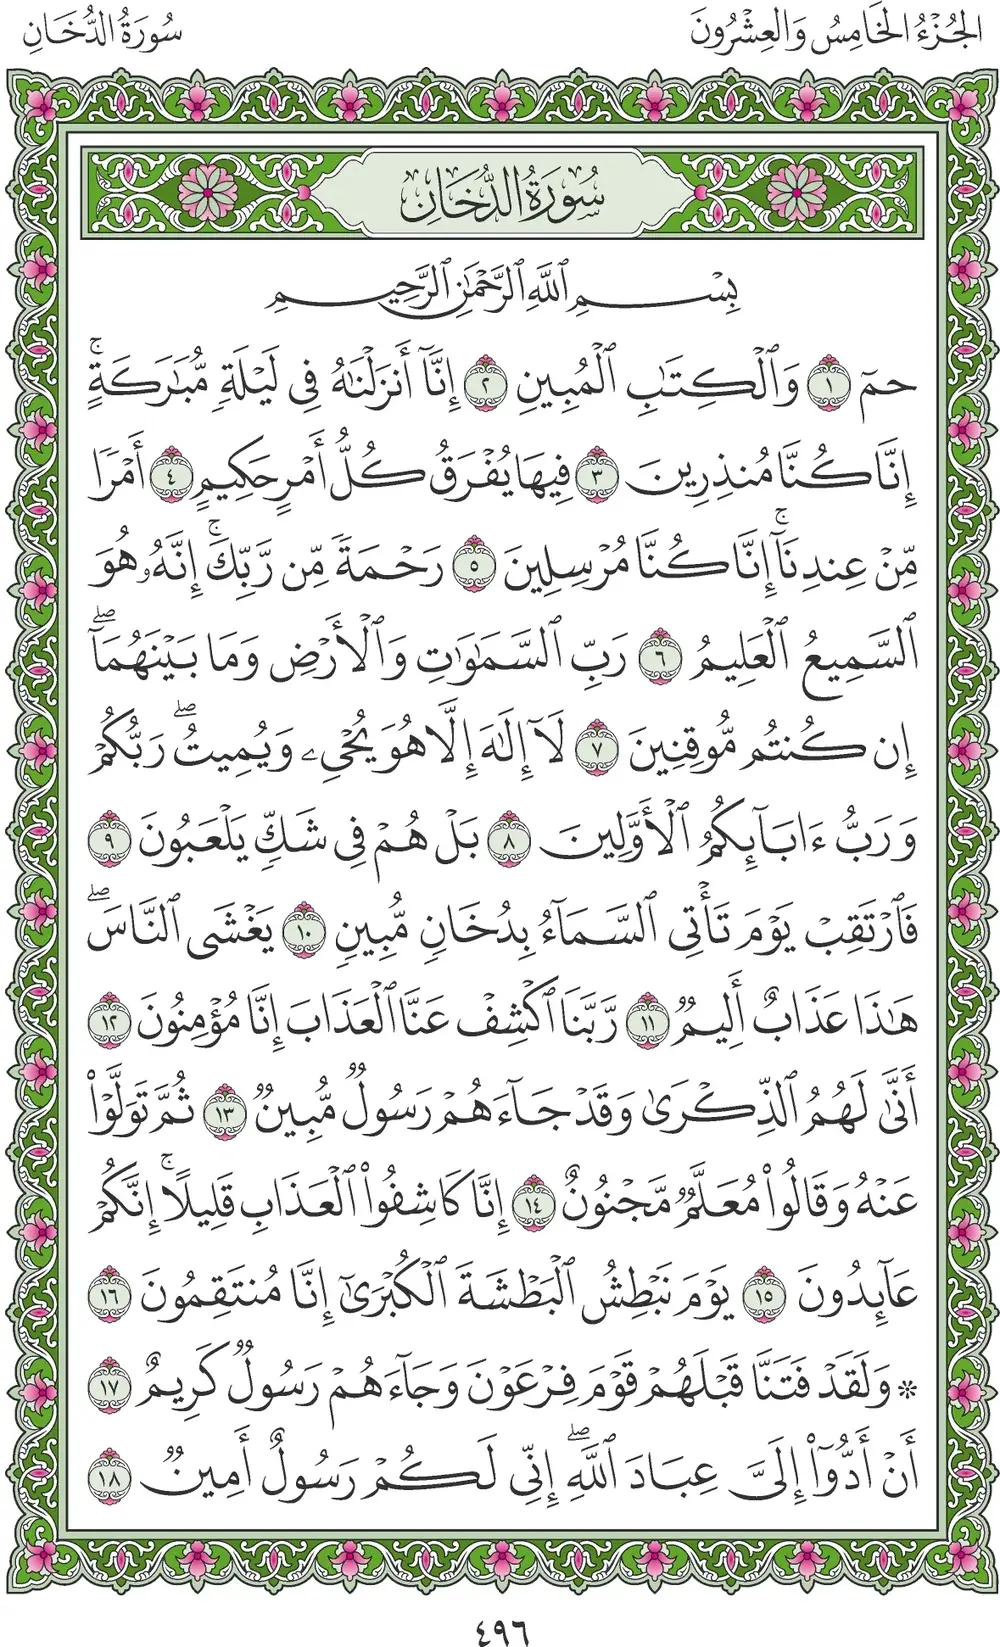 الجُزْءُ الخَامِسُ وَالعِشْرُونَ
سُورَةُ الدُّخَانِ
سُورَةُ الدُّخَانِ
بِسۡمِ ٱللَّهِ ٱلرَّحۡمَٰنِ ٱلرَّحِيمِ
حمٓ ١ وَٱلۡكِتَٰبِ ٱلۡمُبِينِ ٢ إِنَّآ أَنزَلۡنَٰهُ فِي لَيۡلَةٖ مُّبَٰرَكَةٍۚ
إِنَّا كُنَّا مُنذِرِينَ ٣ فِيهَا يُفۡرَقُ كُلُّ أَمۡرٍ حَكِيمٍ ٤ أَمۡرٗا
مِّنۡ عِندِنَآۚ إِنَّا كُنَّا مُرۡسِلِينَ ٥ رَحۡمَةٗ مِّن رَّبِّكَۚ إِنَّهُۥ هُوَ
ٱلسَّمِيعُ ٱلۡعَلِيمُ ٦ رَبِّ ٱلسَّمَٰوَٰتِ وَٱلۡأَرۡضِ وَمَا بَيۡنَهُمَآۖ
إِن كُنتُم مُّوقِنِينَ ٧ لَآ إِلَٰهَ إِلَّا هُوَ يُحۡيِۦ وَيُمِيتُۖ رَبُّكُمۡ
وَرَبُّ ءَابَآئِكُمُ ٱلۡأَوَّلِينَ ٨ بَلۡ هُمۡ فِي شَكّٖ يَلۡعَبُونَ ٩
فَٱرۡتَقِبۡ يَوۡمَ تَأۡتِي ٱلسَّمَآءُ بِدُخَانٖ مُّبِينٖ ١٠ يَغۡشَى ٱلنَّاسَۖ
هَٰذَا عَذَابٌ أَلِيمٞ ١١ رَّبَّنَا ٱكۡشِفۡ عَنَّا ٱلۡعَذَابَ إِنَّا مُؤۡمِنُونَ ١٢
أَنَّىٰ لَهُمُ ٱلذِّكۡرَىٰ وَقَدۡ جَآءَهُمۡ رَسُولٞ مُّبِينٞ ١٣ ثُمَّ تَوَلَّوۡاْ
عَنۡهُ وَقَالُواْ مُعَلَّمٞ مَّجۡنُونٌ ١٤ إِنَّا كَاشِفُواْ ٱلۡعَذَابِ قَلِيلًاۚ إِنَّكُمۡ
عَآئِدُونَ ١٥ يَوۡمَ نَبۡطِشُ ٱلۡبَطۡشَةَ ٱلۡكُبۡرَىٰٓ إِنَّا مُنتَقِمُونَ ١٦
۞ وَلَقَدۡ فَتَنَّا قَبۡلَهُمۡ قَوۡمَ فِرۡعَوۡنَ وَجَآءَهُمۡ رَسُولٞ كَرِيمٌ ١٧
أَنۡ أَدُّوٓاْ إِلَيَّ عِبَادَ ٱللَّهِۖ إِنِّي لَكُمۡ رَسُولٌ أَمِينٞ ١٨
٤٩٦